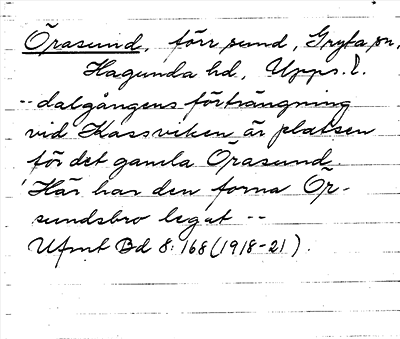 Örasund, förr sund, Gryta sn,
Hagunda hd, Upps. l.
-- dalgångens förträngning
vid Kassviken är platsen
för det gamla Örasund.
Här har den forna Ör-
sundsbro legat --
Ufmt Bd 8:168 (1918-21).